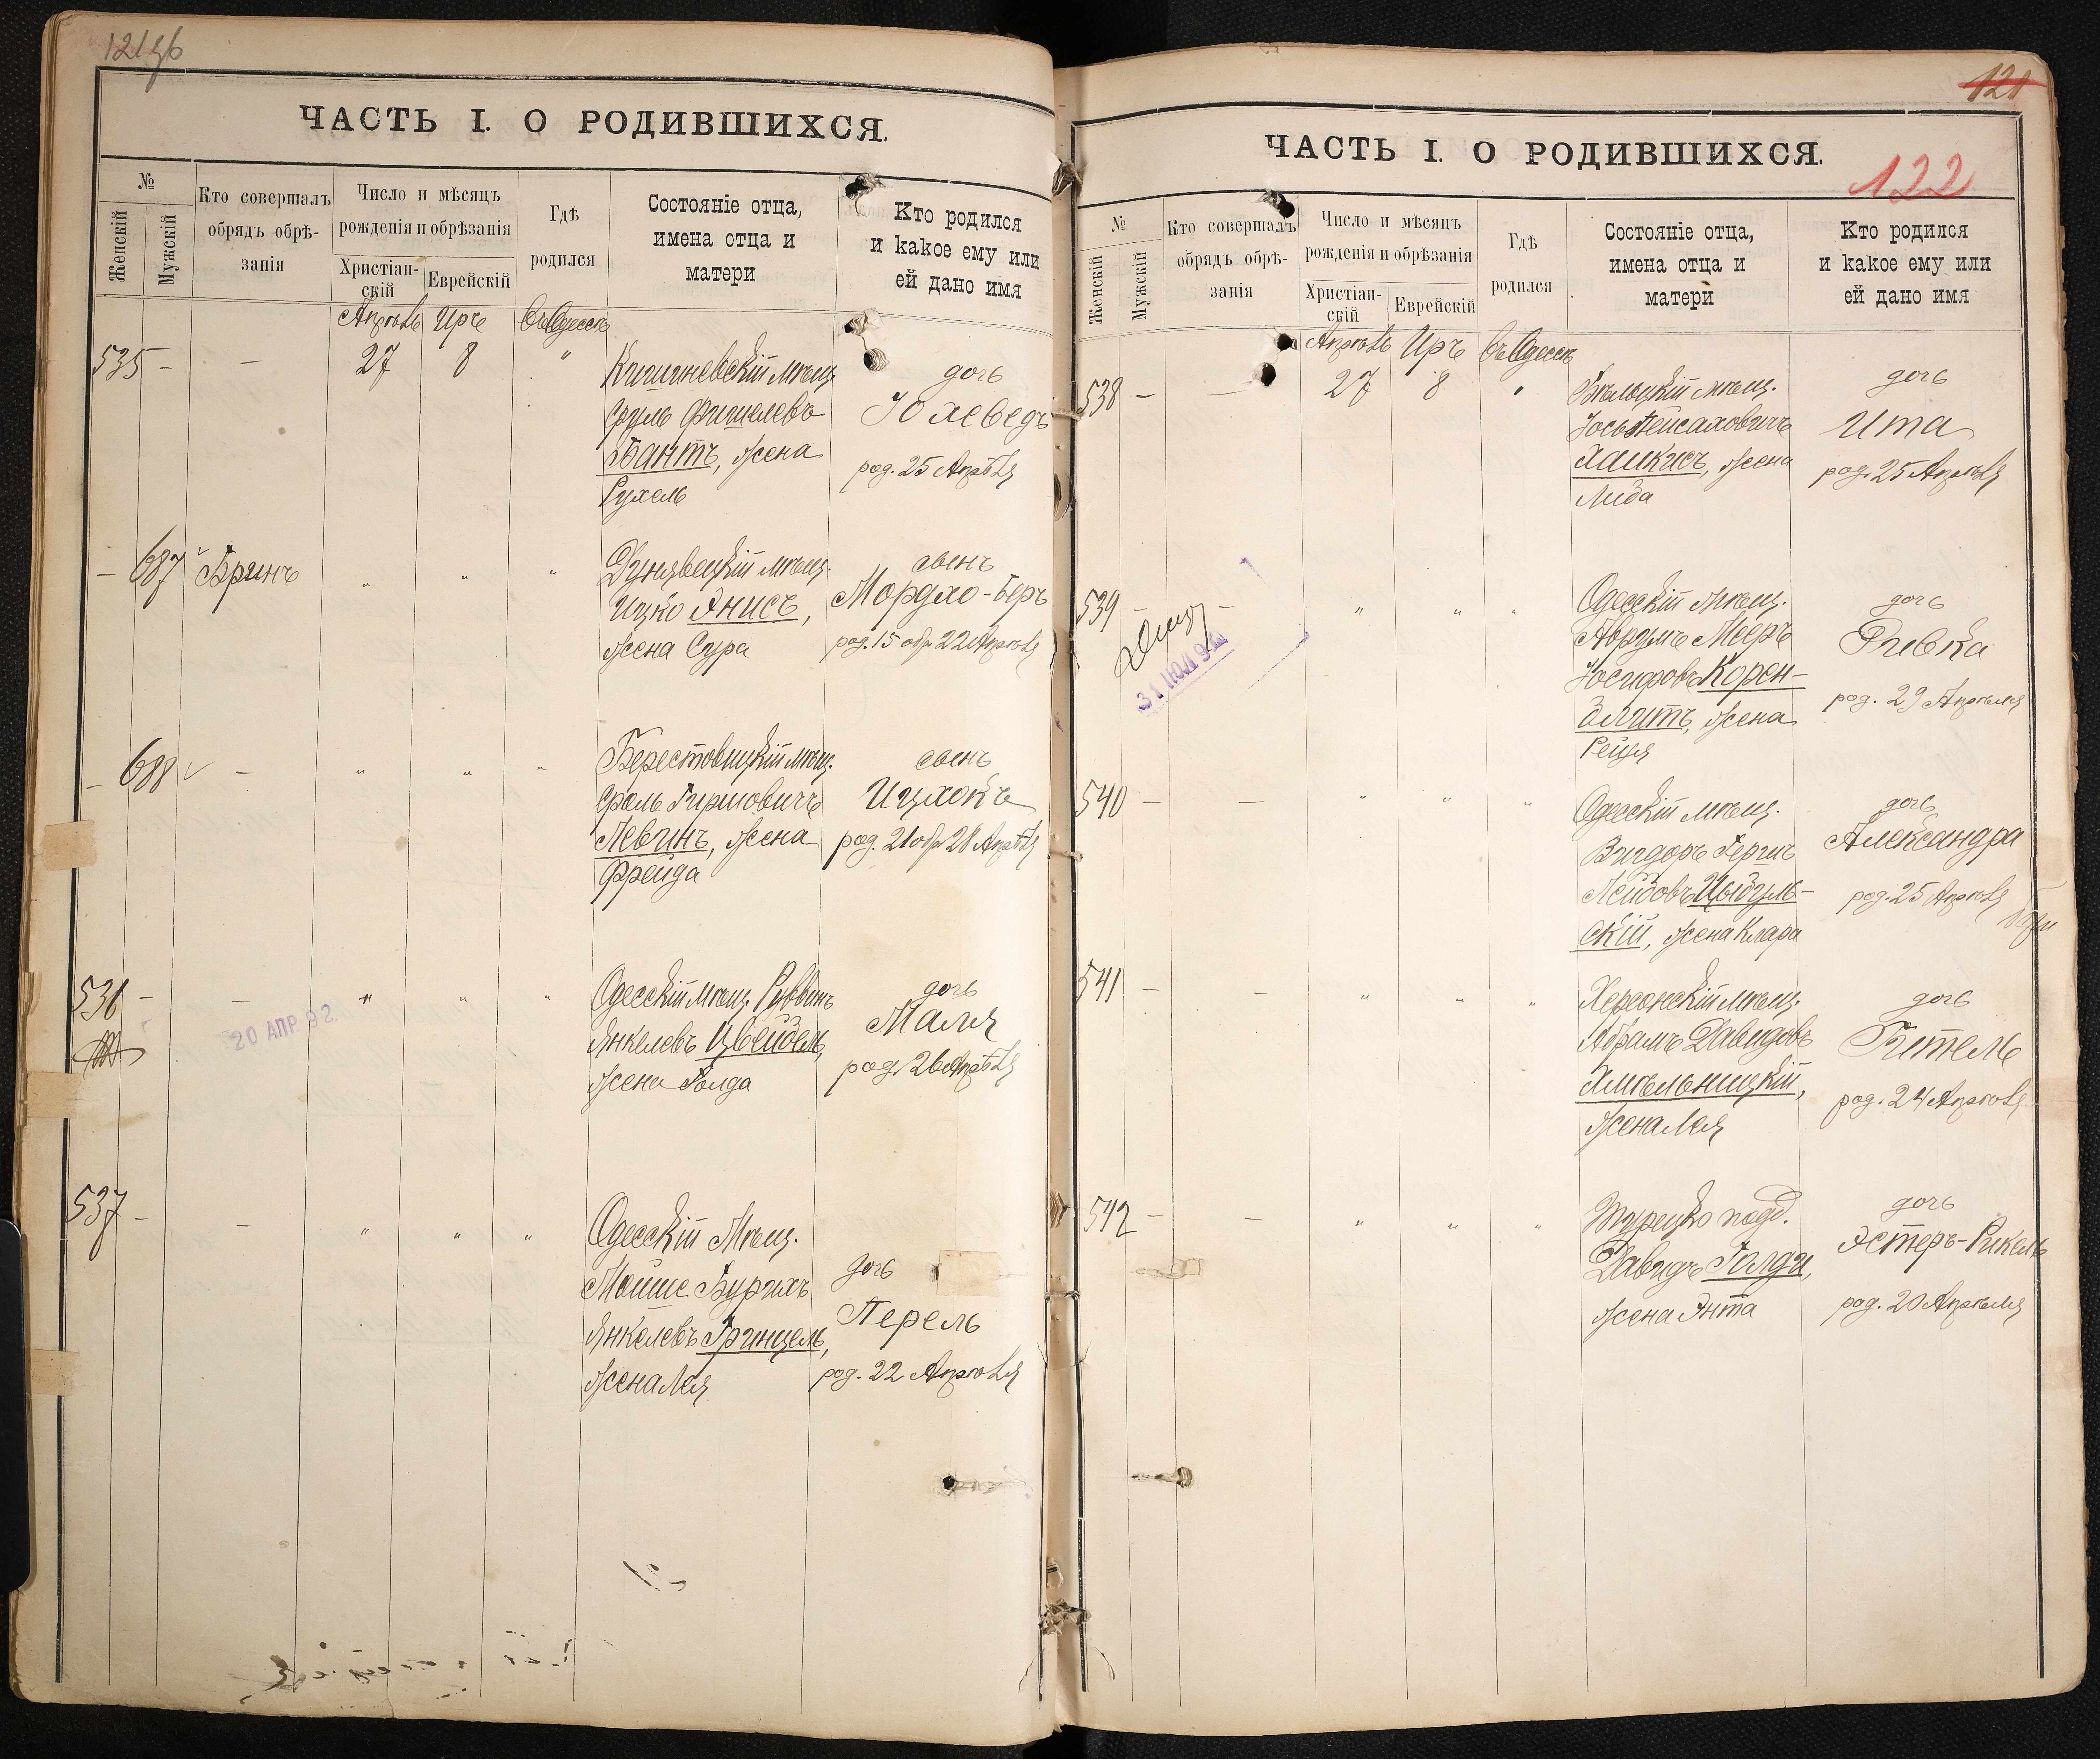 121 об
ЧАСТЬ I. О РОДИВШИХСЯ.
№
Женскій
Мужскій
Кто совершалъ
обрядъ обрѣ-
занія
Число и мѣсяцъ
рожденія и обрѣзанія
Христіан-
скій
Еврейскій
Гдѣ
родился
Состояніе отца,
имена отца и
матери
Кто родился
и какое ему или
ей дано имя
Апрѣль Иръ Въ Одессѣ
535 - — 27 8 "
Кишиневскій мѣщ.
Сруль Фишелевъ
Бантъ, жена
Рухель
дочь
Юхеведъ
род. 25 Апрѣля
- 687 Бринъ " " "
Дунявецкій мѣщ.
Ицко Янисъ,
жена Сура
сынъ
Мордхо-Беръ
род. 15 обр 22 Апрѣля
- 688 — " " "
Берестовицкій мѣщ.
Сроль Гиршовичъ
Левинъ, жена
Фрейда
сынъ
Ицхокъ
род. 21 обр 28 Апрѣля
536 - — " " "
20 АПР. 92.
Одесскій мѣщ. Рувинъ
Янкелевъ Цвейбель,
жена Голда
дочь
Маля
род. 26 Апрѣля
537 - — " " "
Одесскій Мѣщ.
Мойше Бурихъ
Янкелевъ Гринцель,
жена Лея
дочь
Перель
род. 22 Апрѣля
121
ЧАСТЬ I. О РОДИВШИХСЯ.
122
№
Женскій
Мужскій
Кто совершалъ
обрядъ обрѣ-
занія
Число и мѣсяцъ
рожденія и обрѣзанія
Христіан-
скій
Еврейскій
Гдѣ
родился
Состояніе отца,
имена отца и
матери
Кто родился
и какое ему или
ей дано имя
Апрѣль Иръ Въ Одессѣ
538 - — 27 8 "
Бѣлоцкій мѣщ.
Іось Пейсаховичъ
Хаикисъ, жена
Либа
дочь
Ита
род. 25 Апрѣля
539 - — " " "
31 ИЮЛ 92
Одесскій Мѣщ.
Аврумъ Мееръ
Іосифовъ Корен-
блитъ, жена
Рейзя
дочь
Ривка
род. 29 Апрѣля
540 — — " " "
Одесскій мѣщ.
Вигдоръ Герши
Лейбовъ Цыбуль-
скій, жена Клара
дочь
Александра
род. 25 Апрѣля
541 — — " " "
Херсонскій мѣщ.
Абрамъ Давидовъ
Хмѣльницкій,
жена Лея
дочь
Гитель
род. 24 Апрѣля
542 — — " " "
Турецко подд.
Давидъ Голди,
жена Энта
дочь
Эстеръ-Рикель
род. 20 Апрѣля